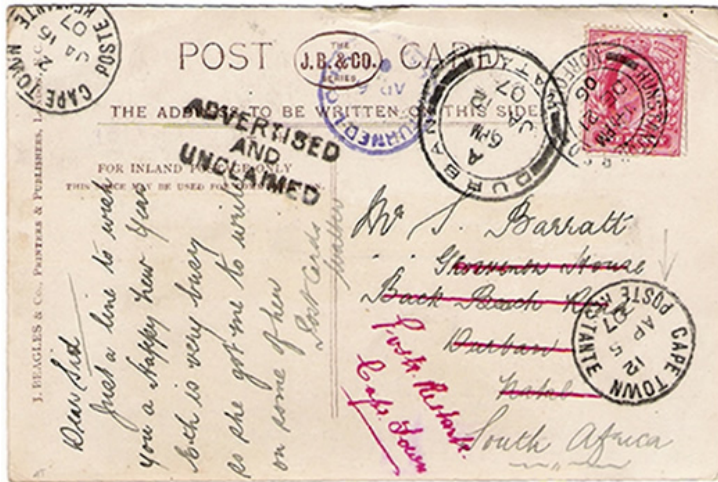 POST CARD
THE
J.B. & CO.
SERIES
THE ADDRESS TO BE WRITTEN ON THIS SIDE
FOR INLAND POSTAGE ONLY
THIS SPACE MAY BE USED FOR
J. BEAGLES & CO., PRINTERS & PUBLISHERS,
ADVERTISED
AND
UNCLAIMED
CAPE TOWN POSTE RESTANTE
JA 15
07
DURBAN NATAL
A
6 PM
JA
07
CAPE TOWN POSTE RESTANTE
12 5
AP
07
Dear Sid
Just a line to wish
you a Happy New Year
Eth is very busy
so she got me to write
on some of her
Post Cards
Mr S. Barratt
Grosvenor House
Back Beach Road
Durban
Natal
South Africa
Poste Restante
Cape Town